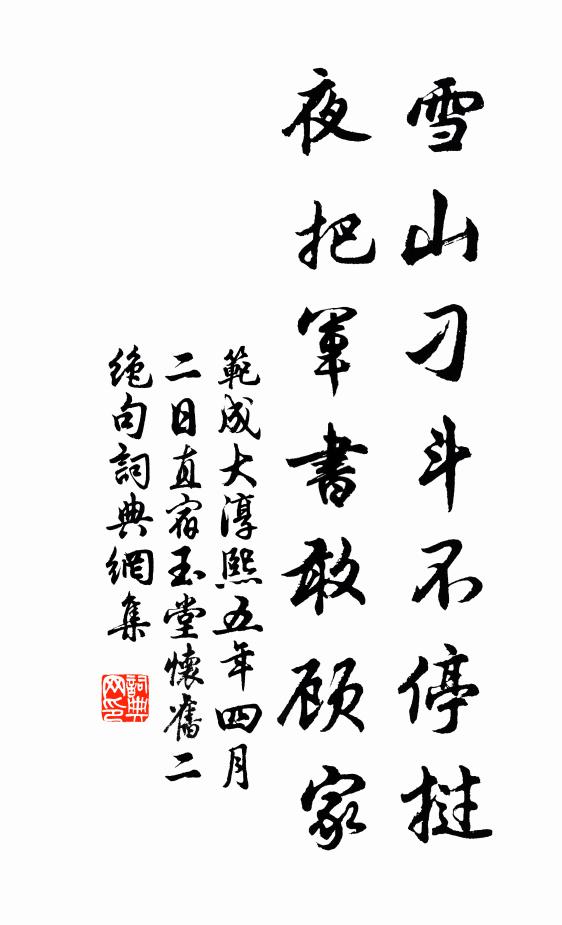 雪山刁斗不停挝
夜把軍書敢顾家
範成大淳熙五年四月
二日直宿玉堂懷舊二
絶句詞典網集
詞典
网印